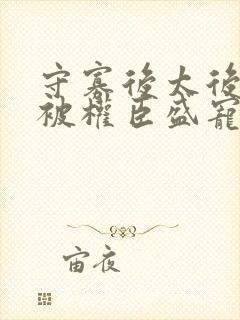 守寡後太後
被權臣盛寵
宙夜